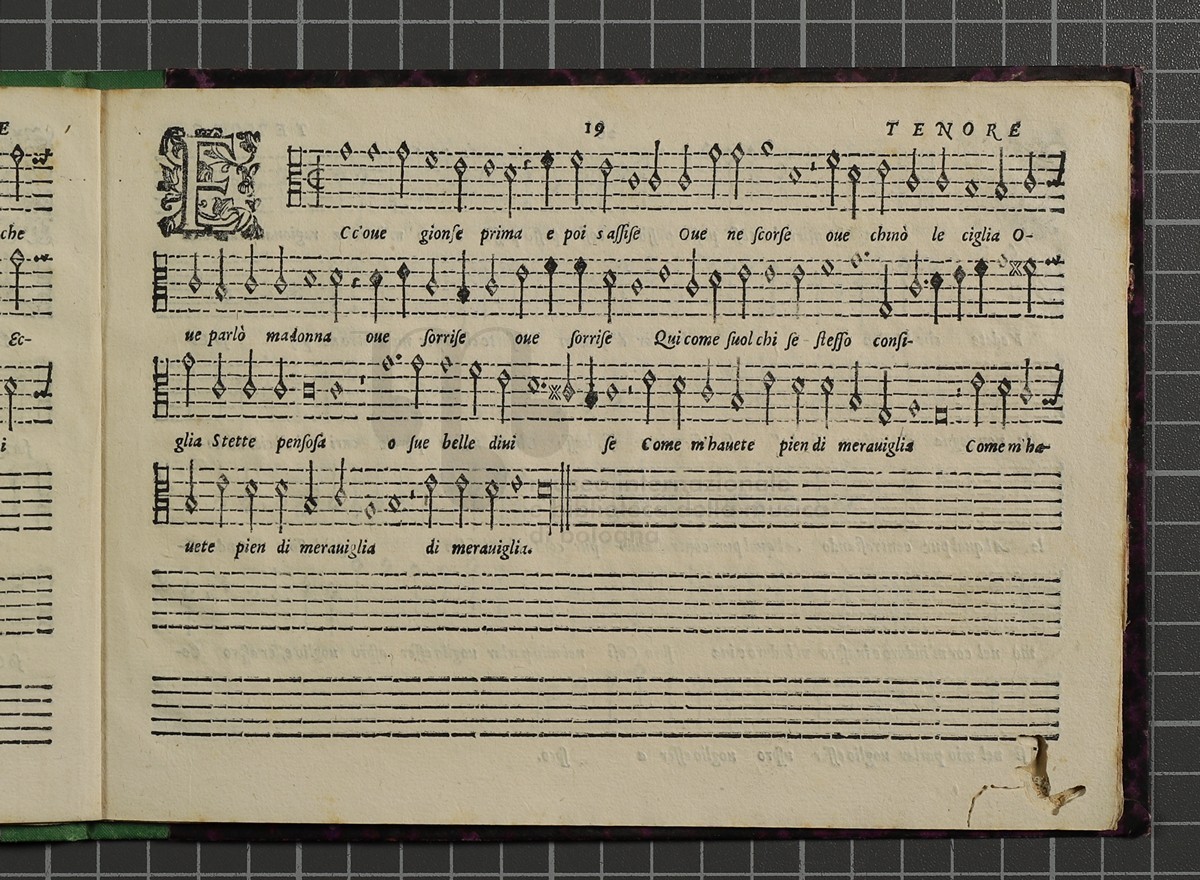 E
19
TENORE
E Cc'oue gionſe prima e poi s'aſſiſe Oue ne ſcorſe oue chinò le ciglia O-
che
ue parlò madonna oue ſorriſe oue ſorriſe Qui come ſuol chi ſe ſteſſo conſi-
Ec-
glia Stette penſoſa o ſue belle diui ſe Come m'hauete pien di merauiglia Come m'ha-
i
uete pien di merauiglia di merauiglia.